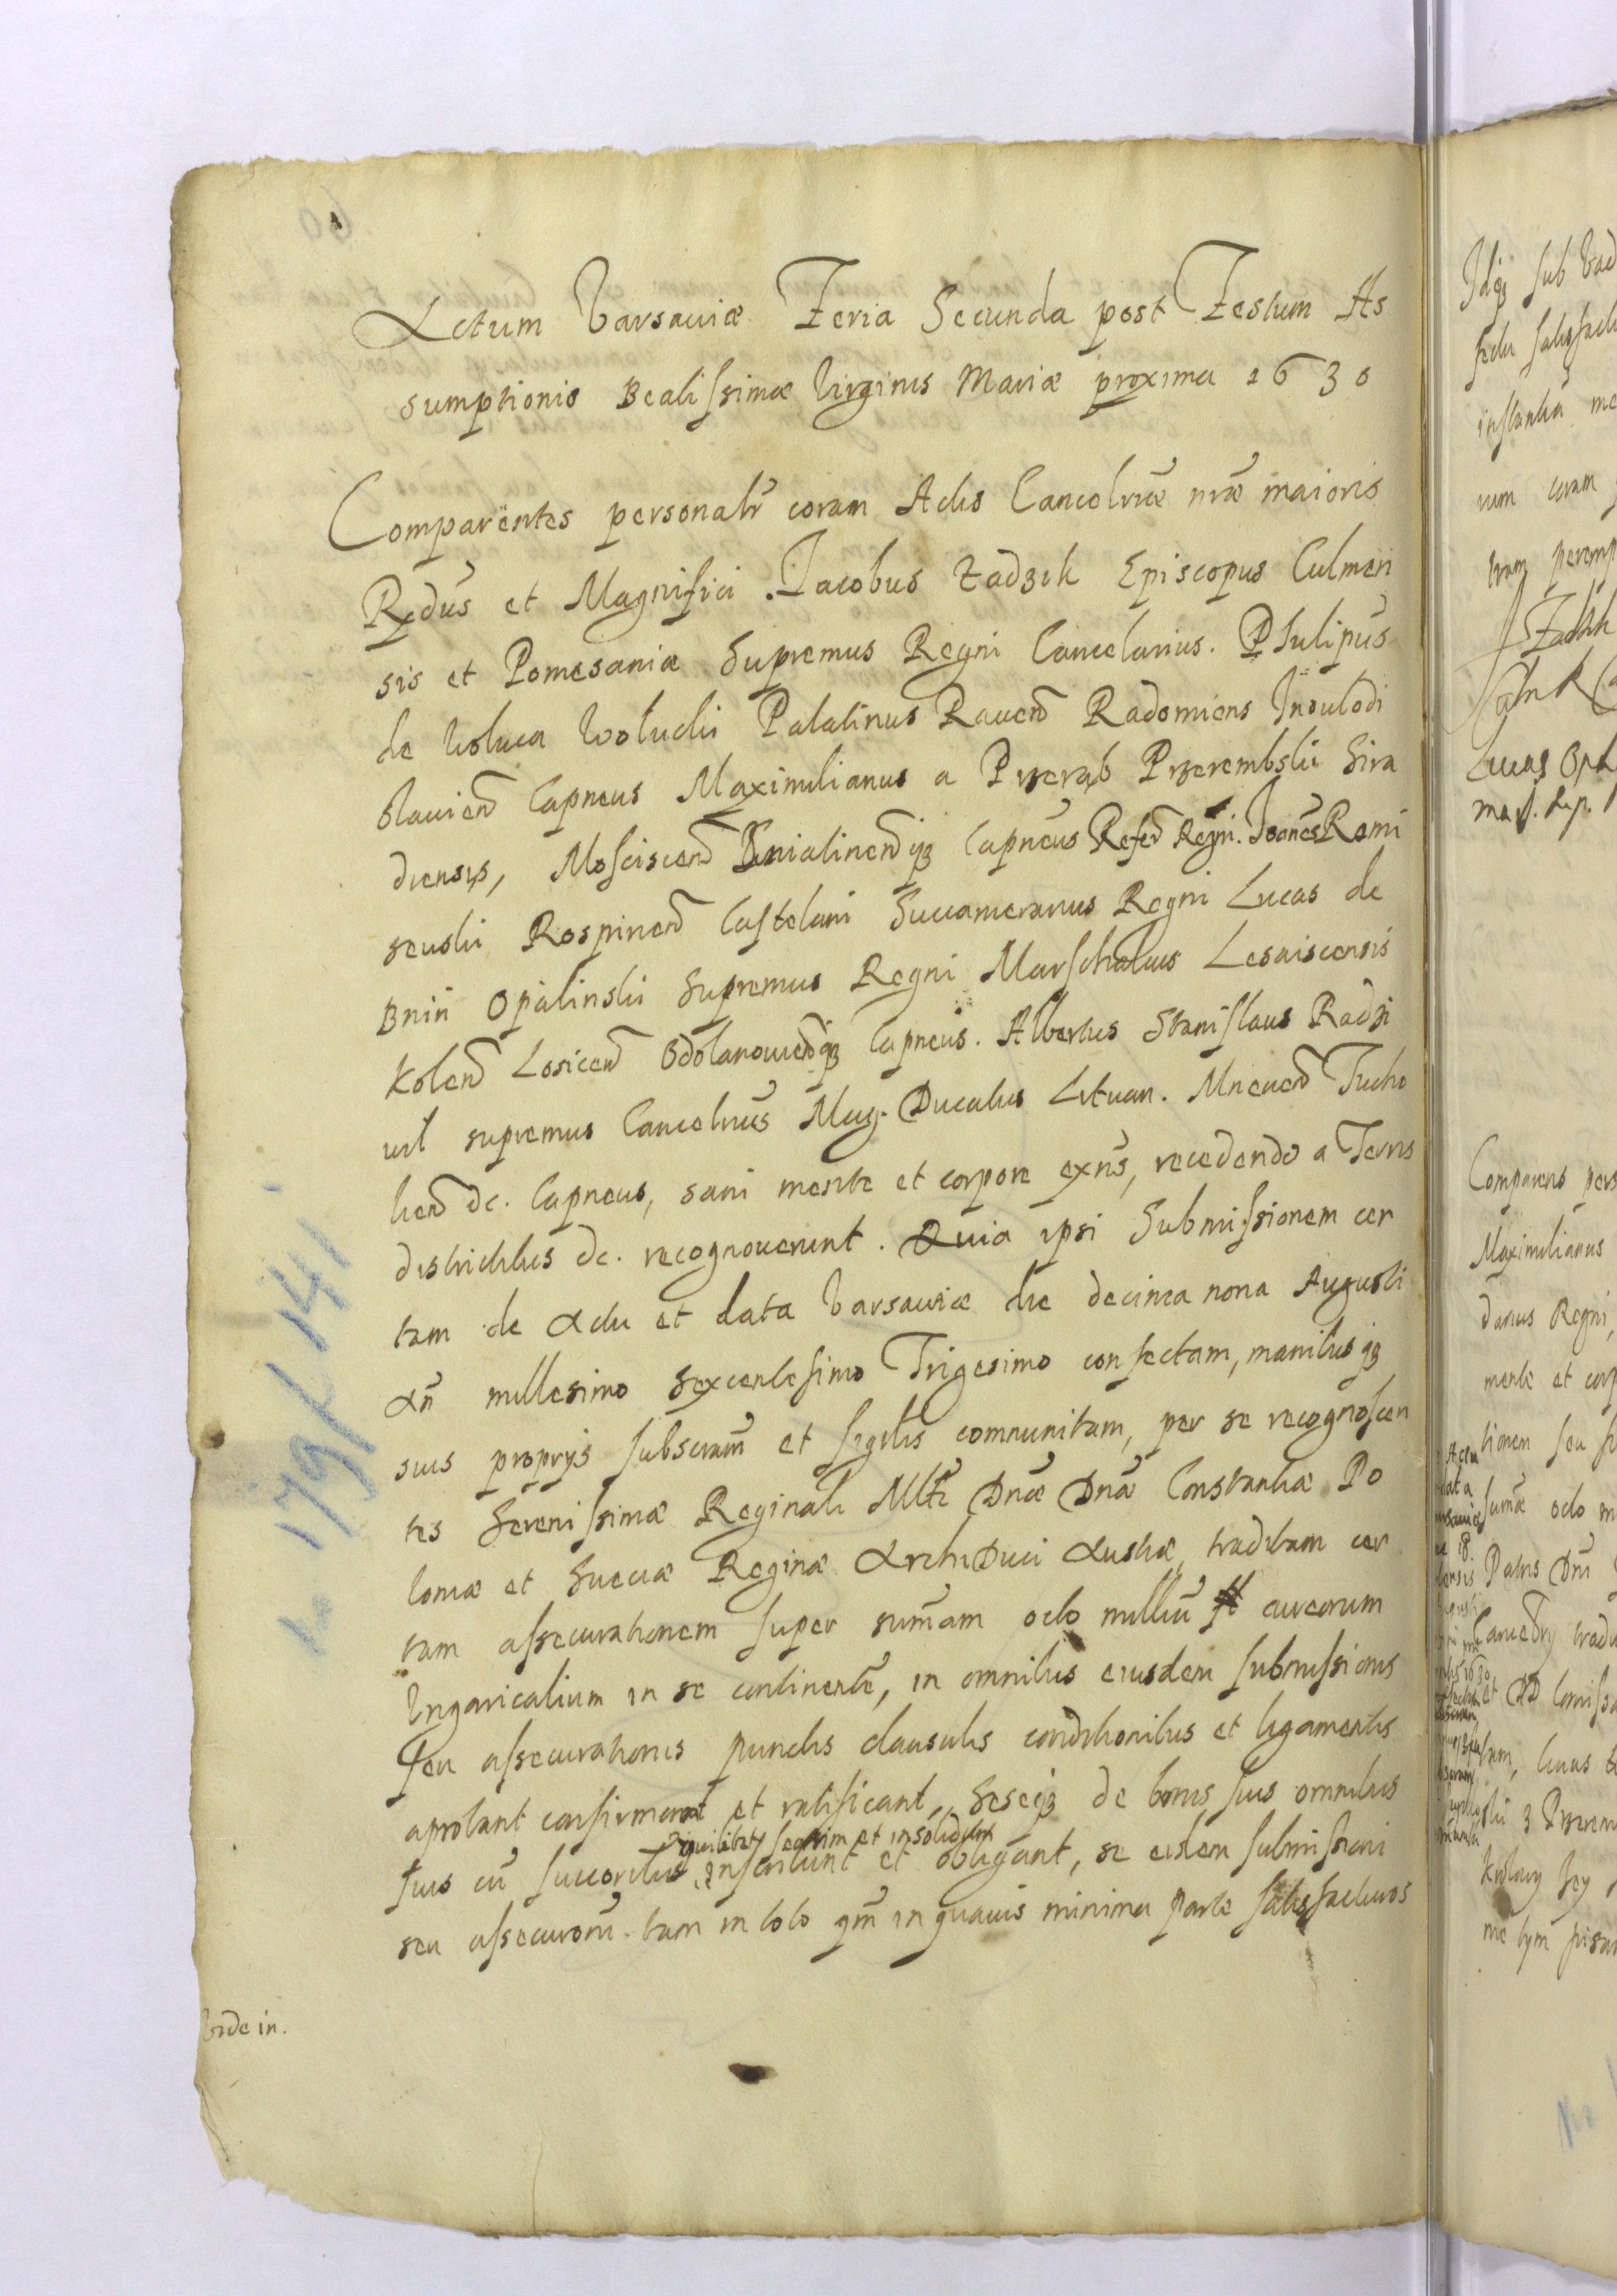 Actum Varsaviæ Feria Secunda post Festum As
sumptionis Beatissimæ Virginis Mariæ proxima 1630
Comparentes personalr̃ coram Actis Cancelriæ nr̃æ maioris
Rp̱dus et Magnifici. Jacobus Zadzik Episcopus Culmen
sis et Pomesaniæ Supremus Regni Cancelarius. Philipus
de Woluca Wolucki Palatinus Raven Radomiens Inoulodi
slavien Capneus Maximilianus a Przerąb Przerembski Sira
diensis, Mosciscen Knialinenqȝ Capneus Refer Regni. Joanes Remi
seuski Rospiren Castelani Succameranus Regni Lucas de
Bnin Opalinski Supremus Regni Marschalcus Lesaiscensis
Kolen Losicen Odolanovienqȝ Capneus. Albertus Stanislaus Radzi
wil supremus Cancelrius Mag. Ducatus Lituan. Mneven Tucho
lien dc. Capneus, sani mente et corpore exñs, recedendo a Terris
districtibus dc. recognoverunt. Quia ipsi Submissionem cer
tam de Actu et data Varsaviæ die decima nona Augusti
Añ millesimo sexcentesimo Trigesimo confectam, manibusqȝ
suis proprijs subscram̃ et sigilis communitam, per se recognoscen
tes Serenissimæ Reginali Mlti Dnæ Dnæ Constantiæ Po
loniæ et Sueciæ Reginæ Archi Duci Austriæ, traditam cer
tam assecurationem super sum̃am octo milliũ aureorum
Ungaricalium in se continentẽ, in omnibus eiusdem submissionis
seu assecurationis punctis clausulis conditionibus et ligamentis
aprobant confirmant et ratificant, Seseqȝ de bonis suis omnibus
quilibet seorsim et insolidum
suis cũ succoribus inscribunt et obligant, se eidem submissioni
seu assecuroni. tam in toto qm̃ in quavis minima parte satisfacturos
Vide in.
No 179/141.
60
Idqȝ sub vad
instantia me
rum coram
J Zadzik
Lucas Opal
Comparens pers
Maximilianus
danus Regni,
mente et corp
tionem seu
sum̃æ octo m
Patris Dni